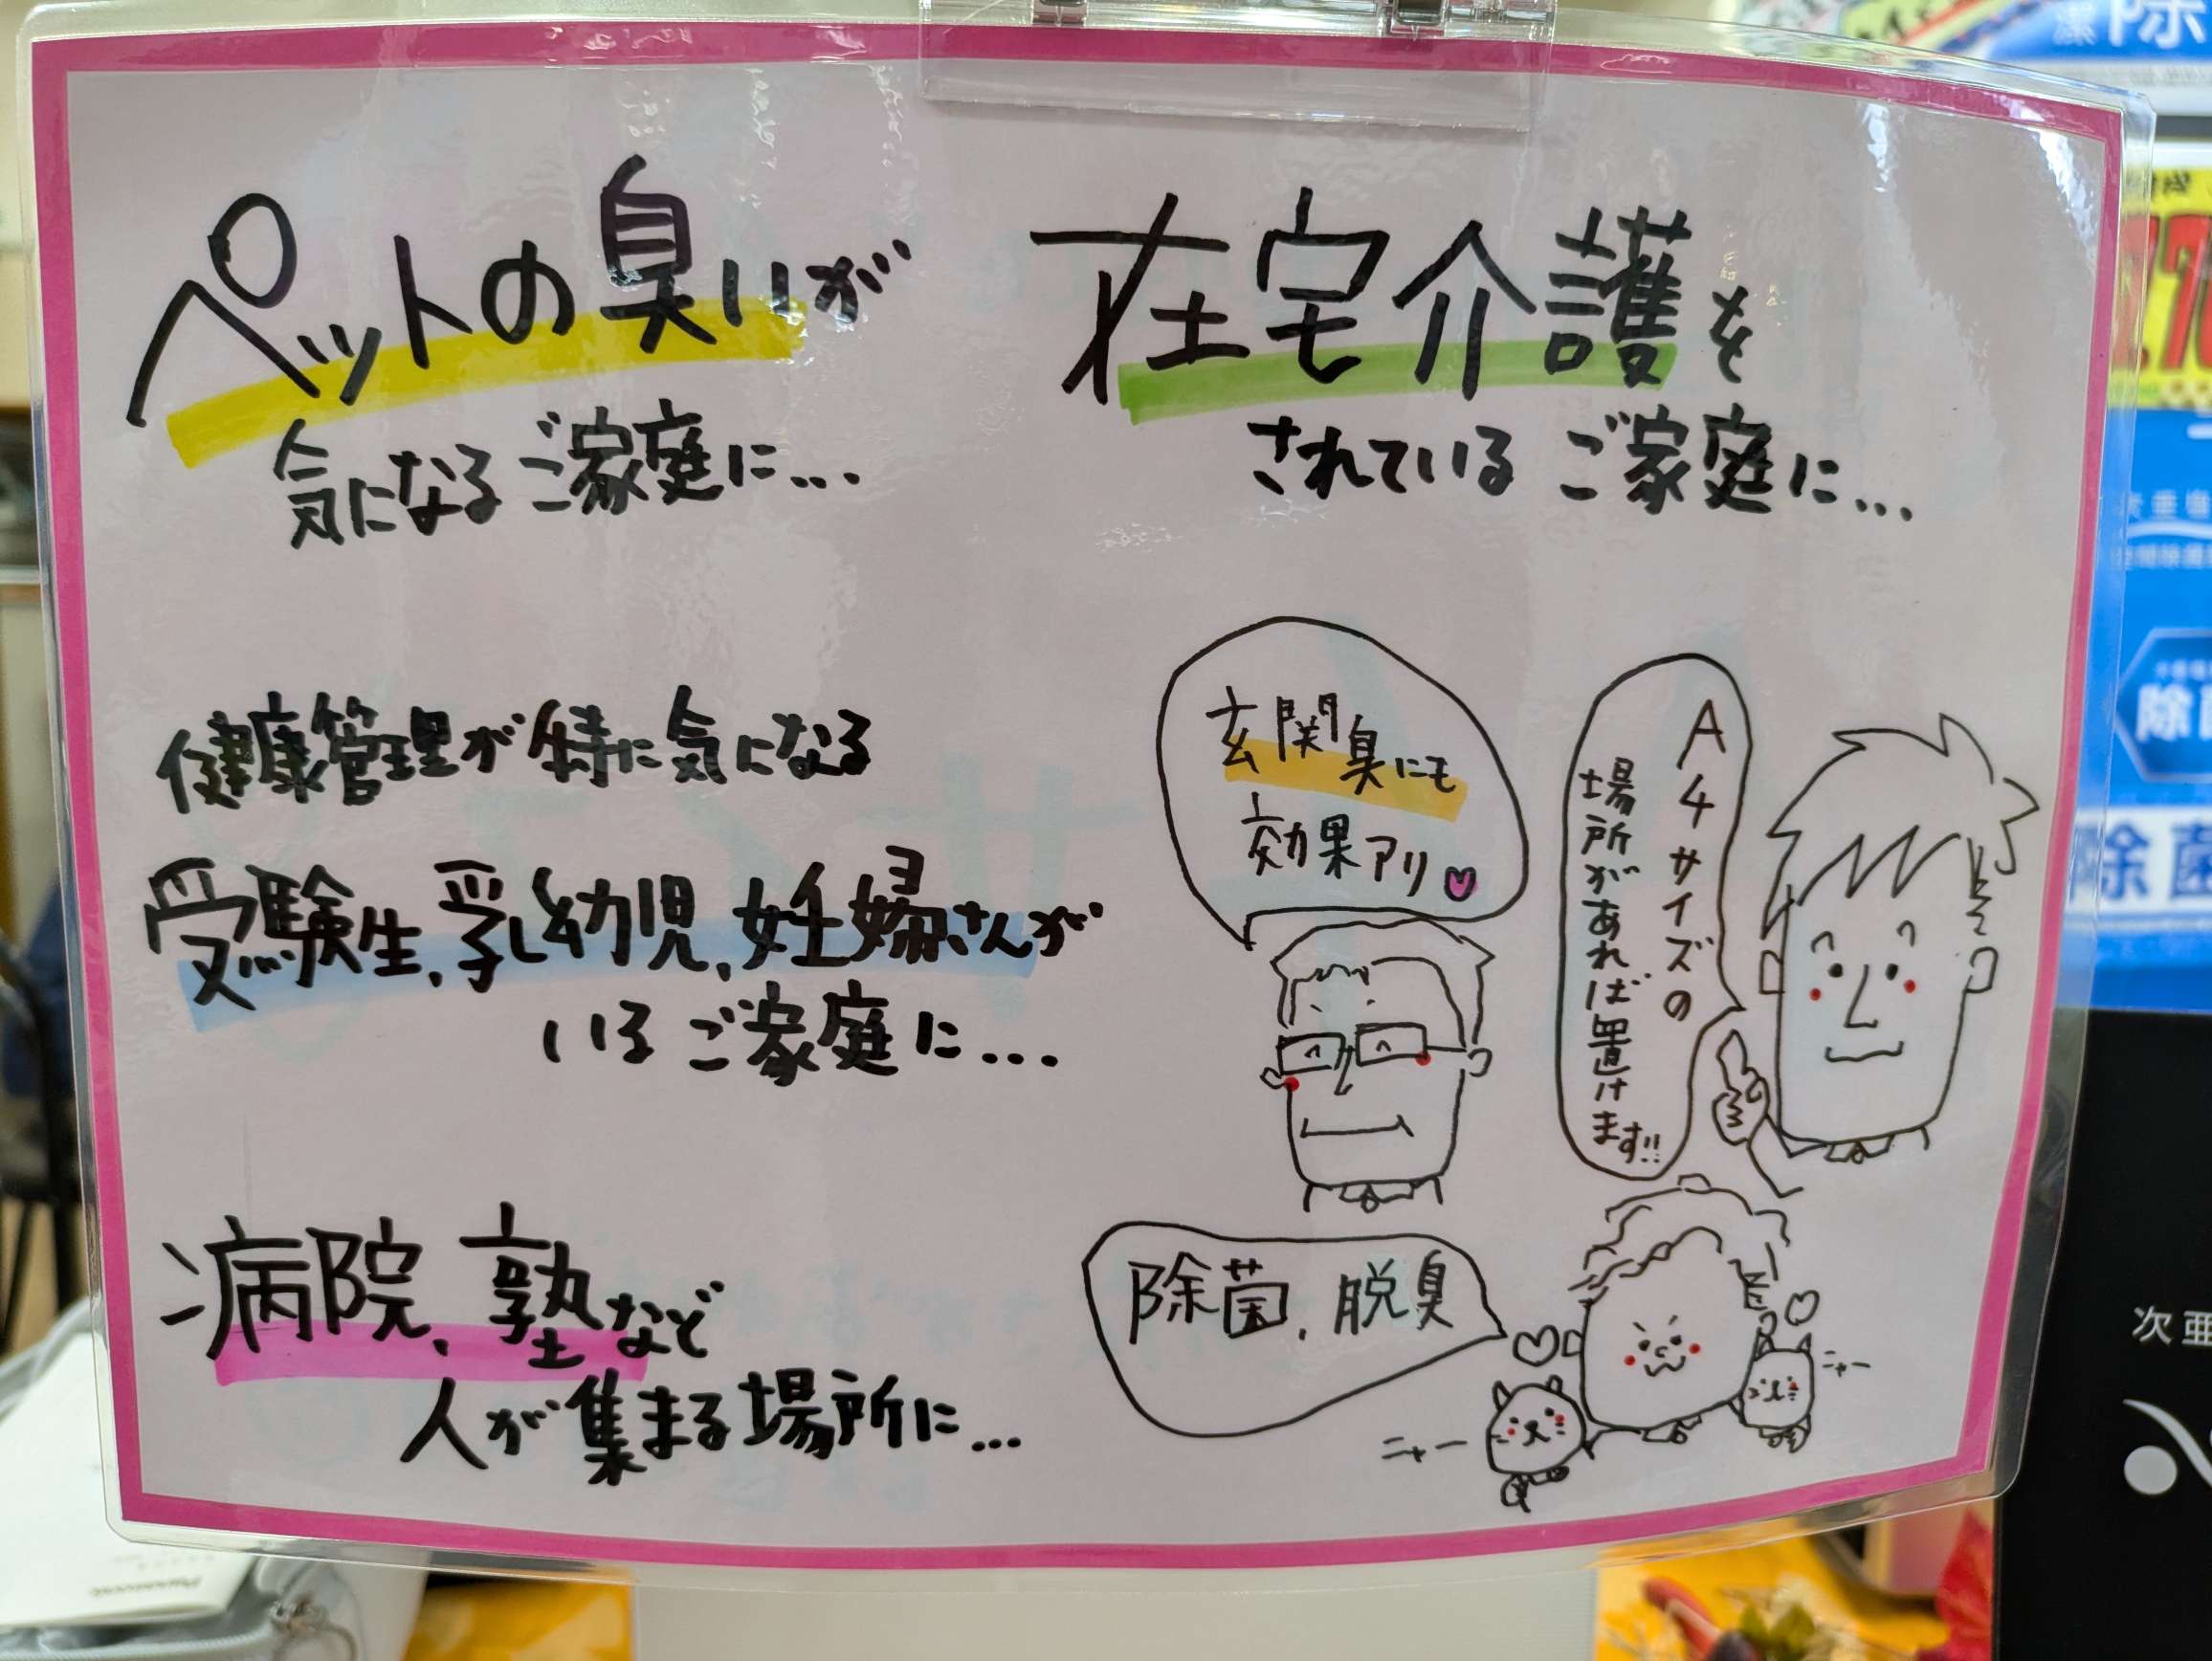 ペットの臭いが
気になるご家庭に…
在宅介護を
されているご家庭に…
健康管理が特に気になる
受験生、乳幼児、妊婦さんが
いるご家庭に…
病院、塾など
人が集まる場所に…
玄関臭にも
効果アリ
A4サイズの
場所があれば置けます!!
除菌、脱臭
ニャー
ニャー
除
除菌
次亜
Panasonic